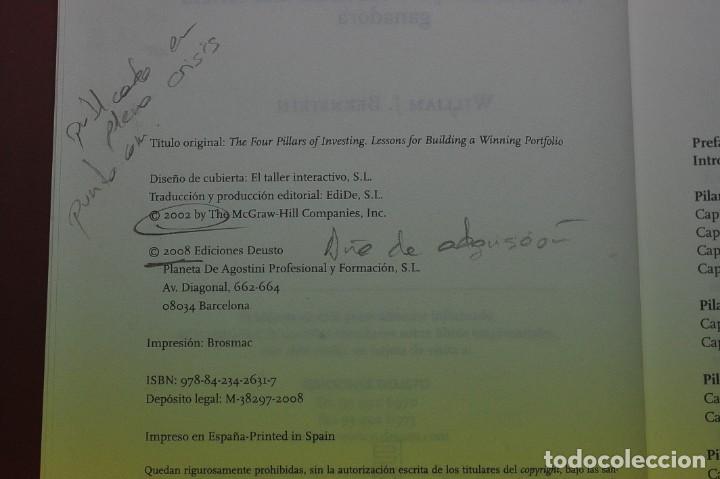 ganadora
WILLIAM J. BERNSTEIN
publicado en
plena crisis
punto com.
Título original: The Four Pillars of Investing. Lessons for Building a Winning Portfolio
Diseño de cubierta: El taller interactivo, S.L.
Traducción y producción editorial: EdiDe, S.L.
© 2002 by The McGraw-Hill Companies, Inc.
© 2008 Ediciones Deusto
Año de adquisición
Planeta De Agostini Profesional y Formación, S.L.
Av. Diagonal, 662-664
08034 Barcelona
Impresión: Brosmac
ISBN: 978-84-234-2631-7
Depósito legal: M-38297-2008
Impreso en España-Printed in Spain
Quedan rigurosamente prohibidas, sin la autorización escrita de los titulares del copyright, bajo las san-
Prefa
Intro
Pilar
Cap
Cap
Cap
Cap
Pila
Cap
Cap
Pil
Ca
Ca
Pi
C
todocoleccion